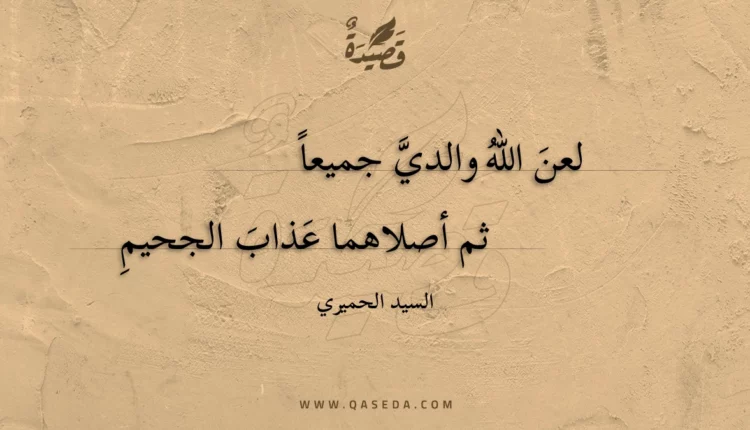 قَصِيْدَةٌ
لعنَ اللهُ والديَّ جميعاً
ثم أصلاهما عَذابَ الجحيمِ
السيد الحميري
WWW.QASEDA.COM